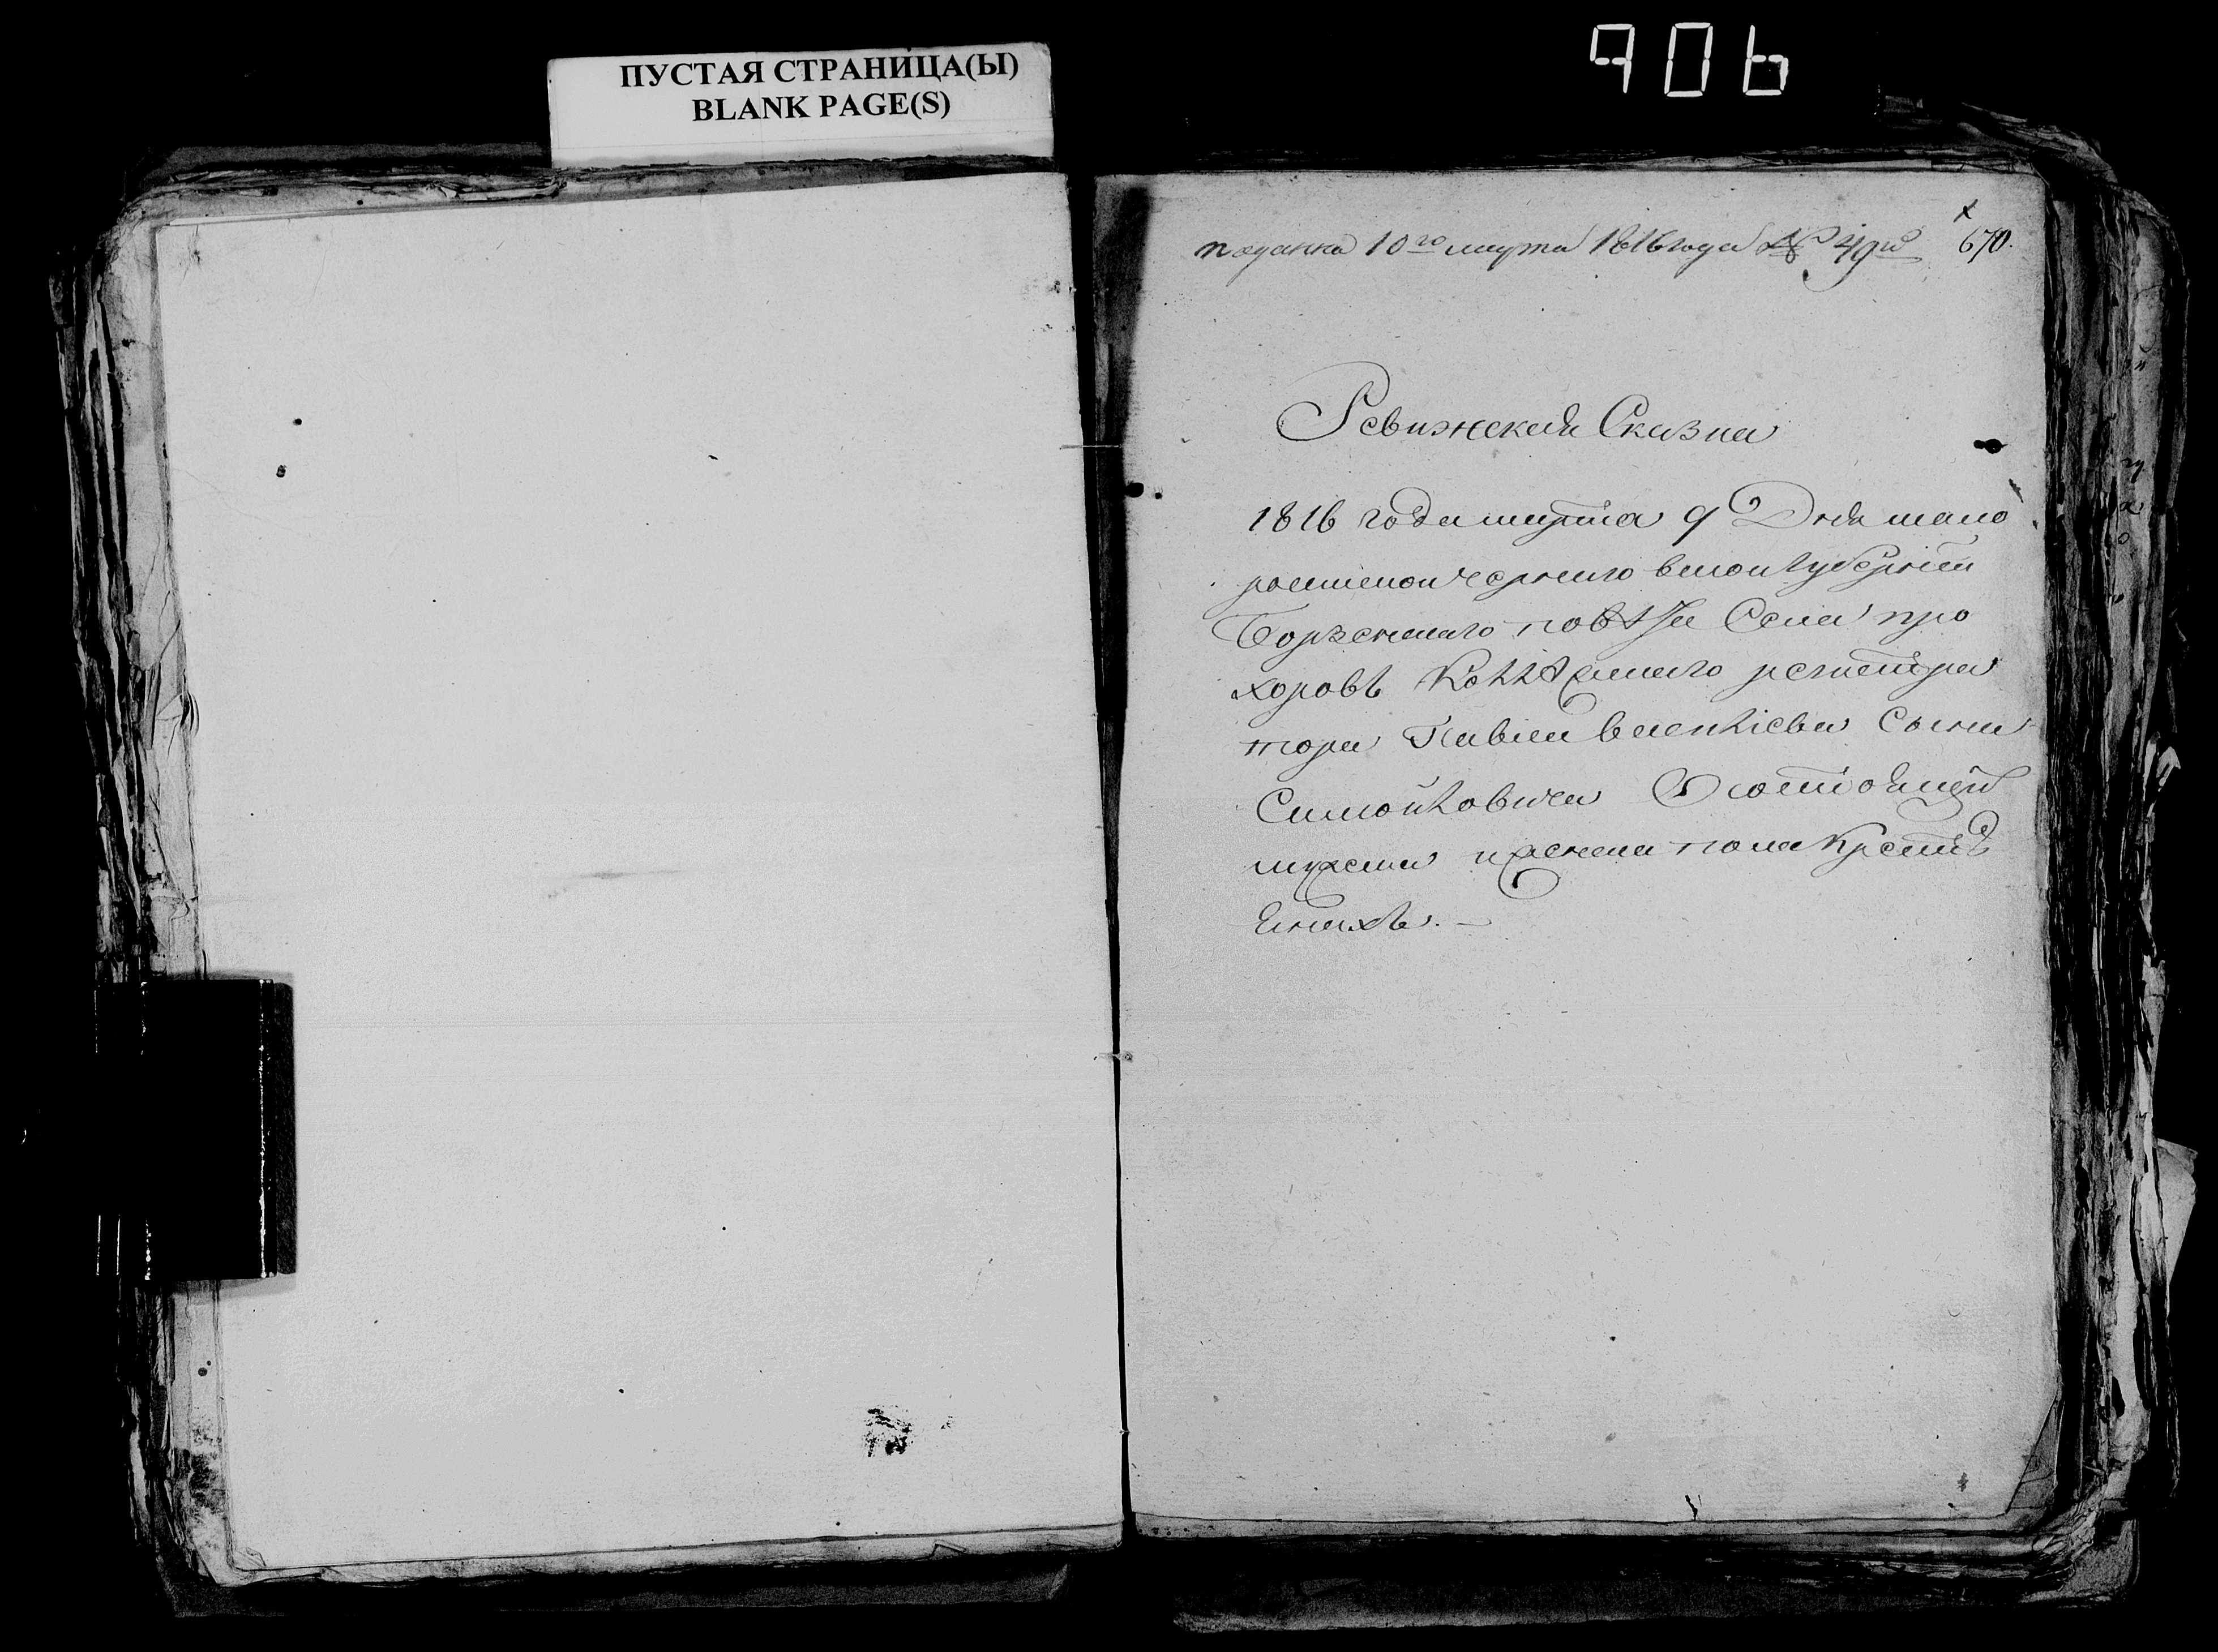 ПУСТАЯ СТРАНИЦА(Ы)
BLANK PAGE(S)
906
подана 10го марта 1816 года № 49й
670.
Ревижская Сказка
1816 года марта 9 Дня мало
россииской черниговской губернии
Борзенского повѣта Села про
хоровь Коллѣжского регистра
тора Павла василиева Сына
Самойловича О состоящих
мужеска и женска пола Крестя
янахъ. —